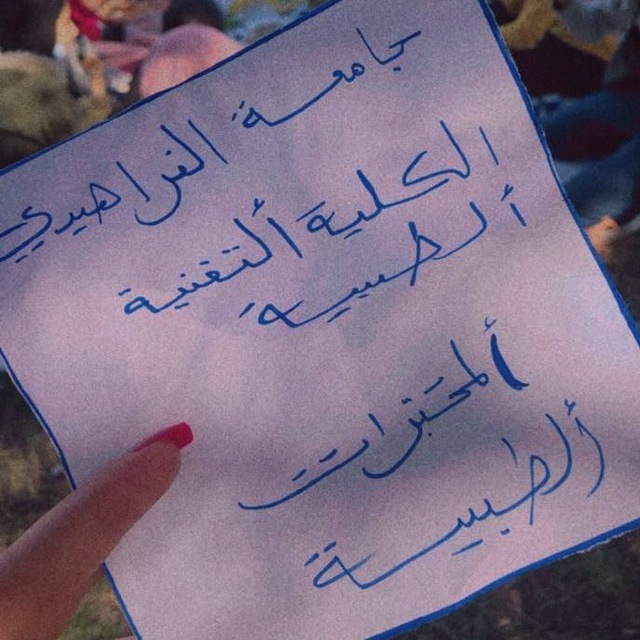 جامعة الفراهيدي
الكلية ألتقنية
ألطبية
ألمختبرات
ألطبية